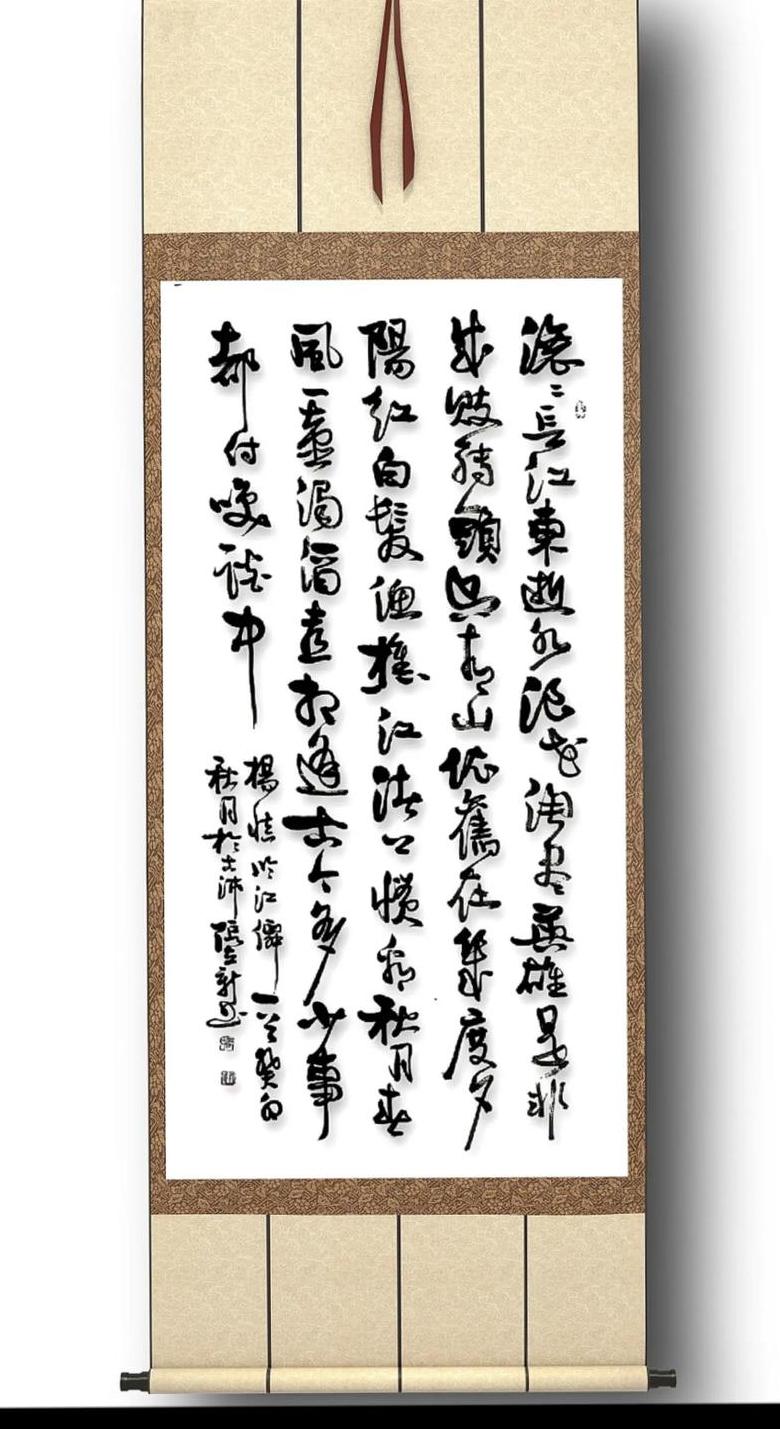 滾々長江東逝水浪花淘盡英雄是非
成敗轉頭空青山依舊在幾度夕
陽紅白髮漁樵江渚上慣看秋月春
風一壺濁酒喜相逢古今多少事
都付笑談中
楊慎臨江仙一首癸卯
秋月於